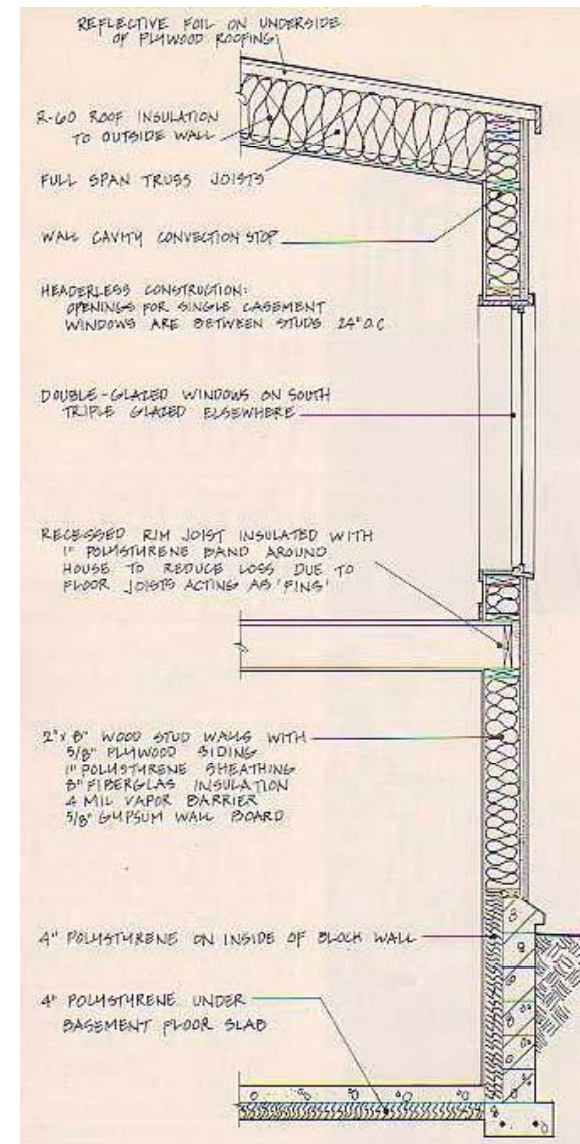 REFLECTIVE FOIL ON UNDERSIDE
OF PLYWOOD ROOFING
R-60 ROOF INSULATION
TO OUTSIDE WALL
FULL SPAN TRUSS JOISTS
WALL CAVITY CONVECTION STOP
HEADERLESS CONSTRUCTION:
OPENINGS FOR SINGLE CASEMENT
WINDOWS ARE BETWEEN STUDS 24" O.C
DOUBLE-GLAZED WINDOWS ON SOUTH
TRIPLE GLAZED ELSEWHERE
RECESSED RIM JOIST INSULATED WITH
1" POLYSTYRENE BAND AROUND
HOUSE TO REDUCE LOSS DUE TO
FLOOR JOISTS ACTING AS 'FINS'
2"x8" WOOD STUD WALLS WITH
5/8" PLYWOOD SIDING
1" POLYSTYRENE SHEATHING
8" FIBERGLAS INSULATION
4 MIL VAPOR BARRIER
5/8" GYPSUM WALL BOARD
4" POLYSTYRENE ON INSIDE OF BLOCK WALL
4" POLYSTYRENE UNDER
BASEMENT FLOOR SLAB